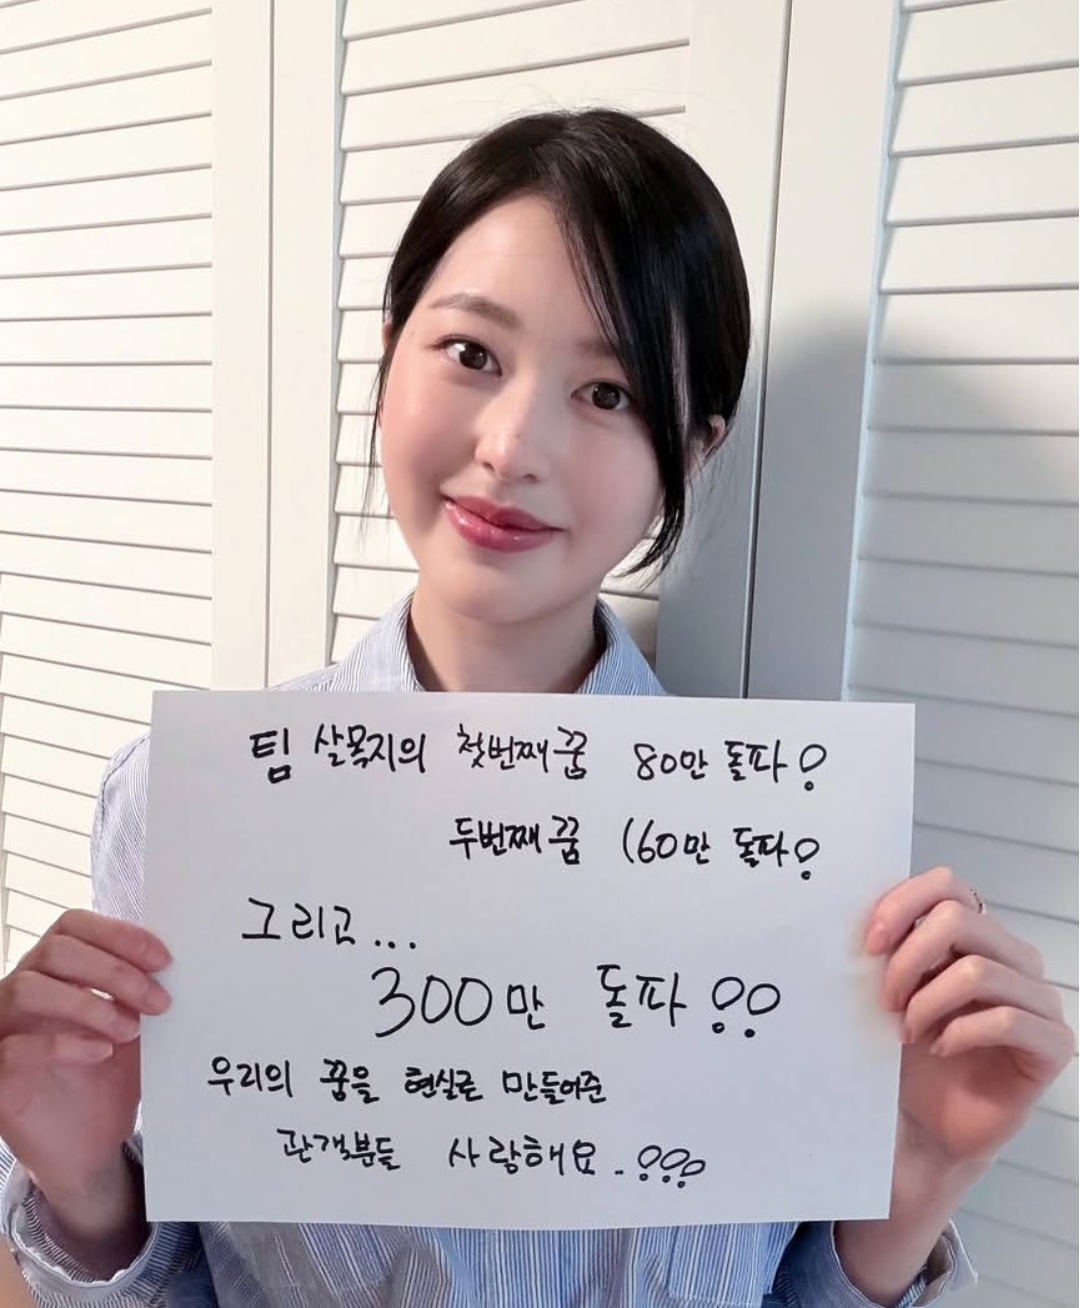 팀 살목지의 첫번째꿈 80만 돌파!
두번째꿈 160만 돌파!
그리고...
300만 돌파!!
우리의 꿈을 현실로 만들어준
관객분들 사랑해요.!!!